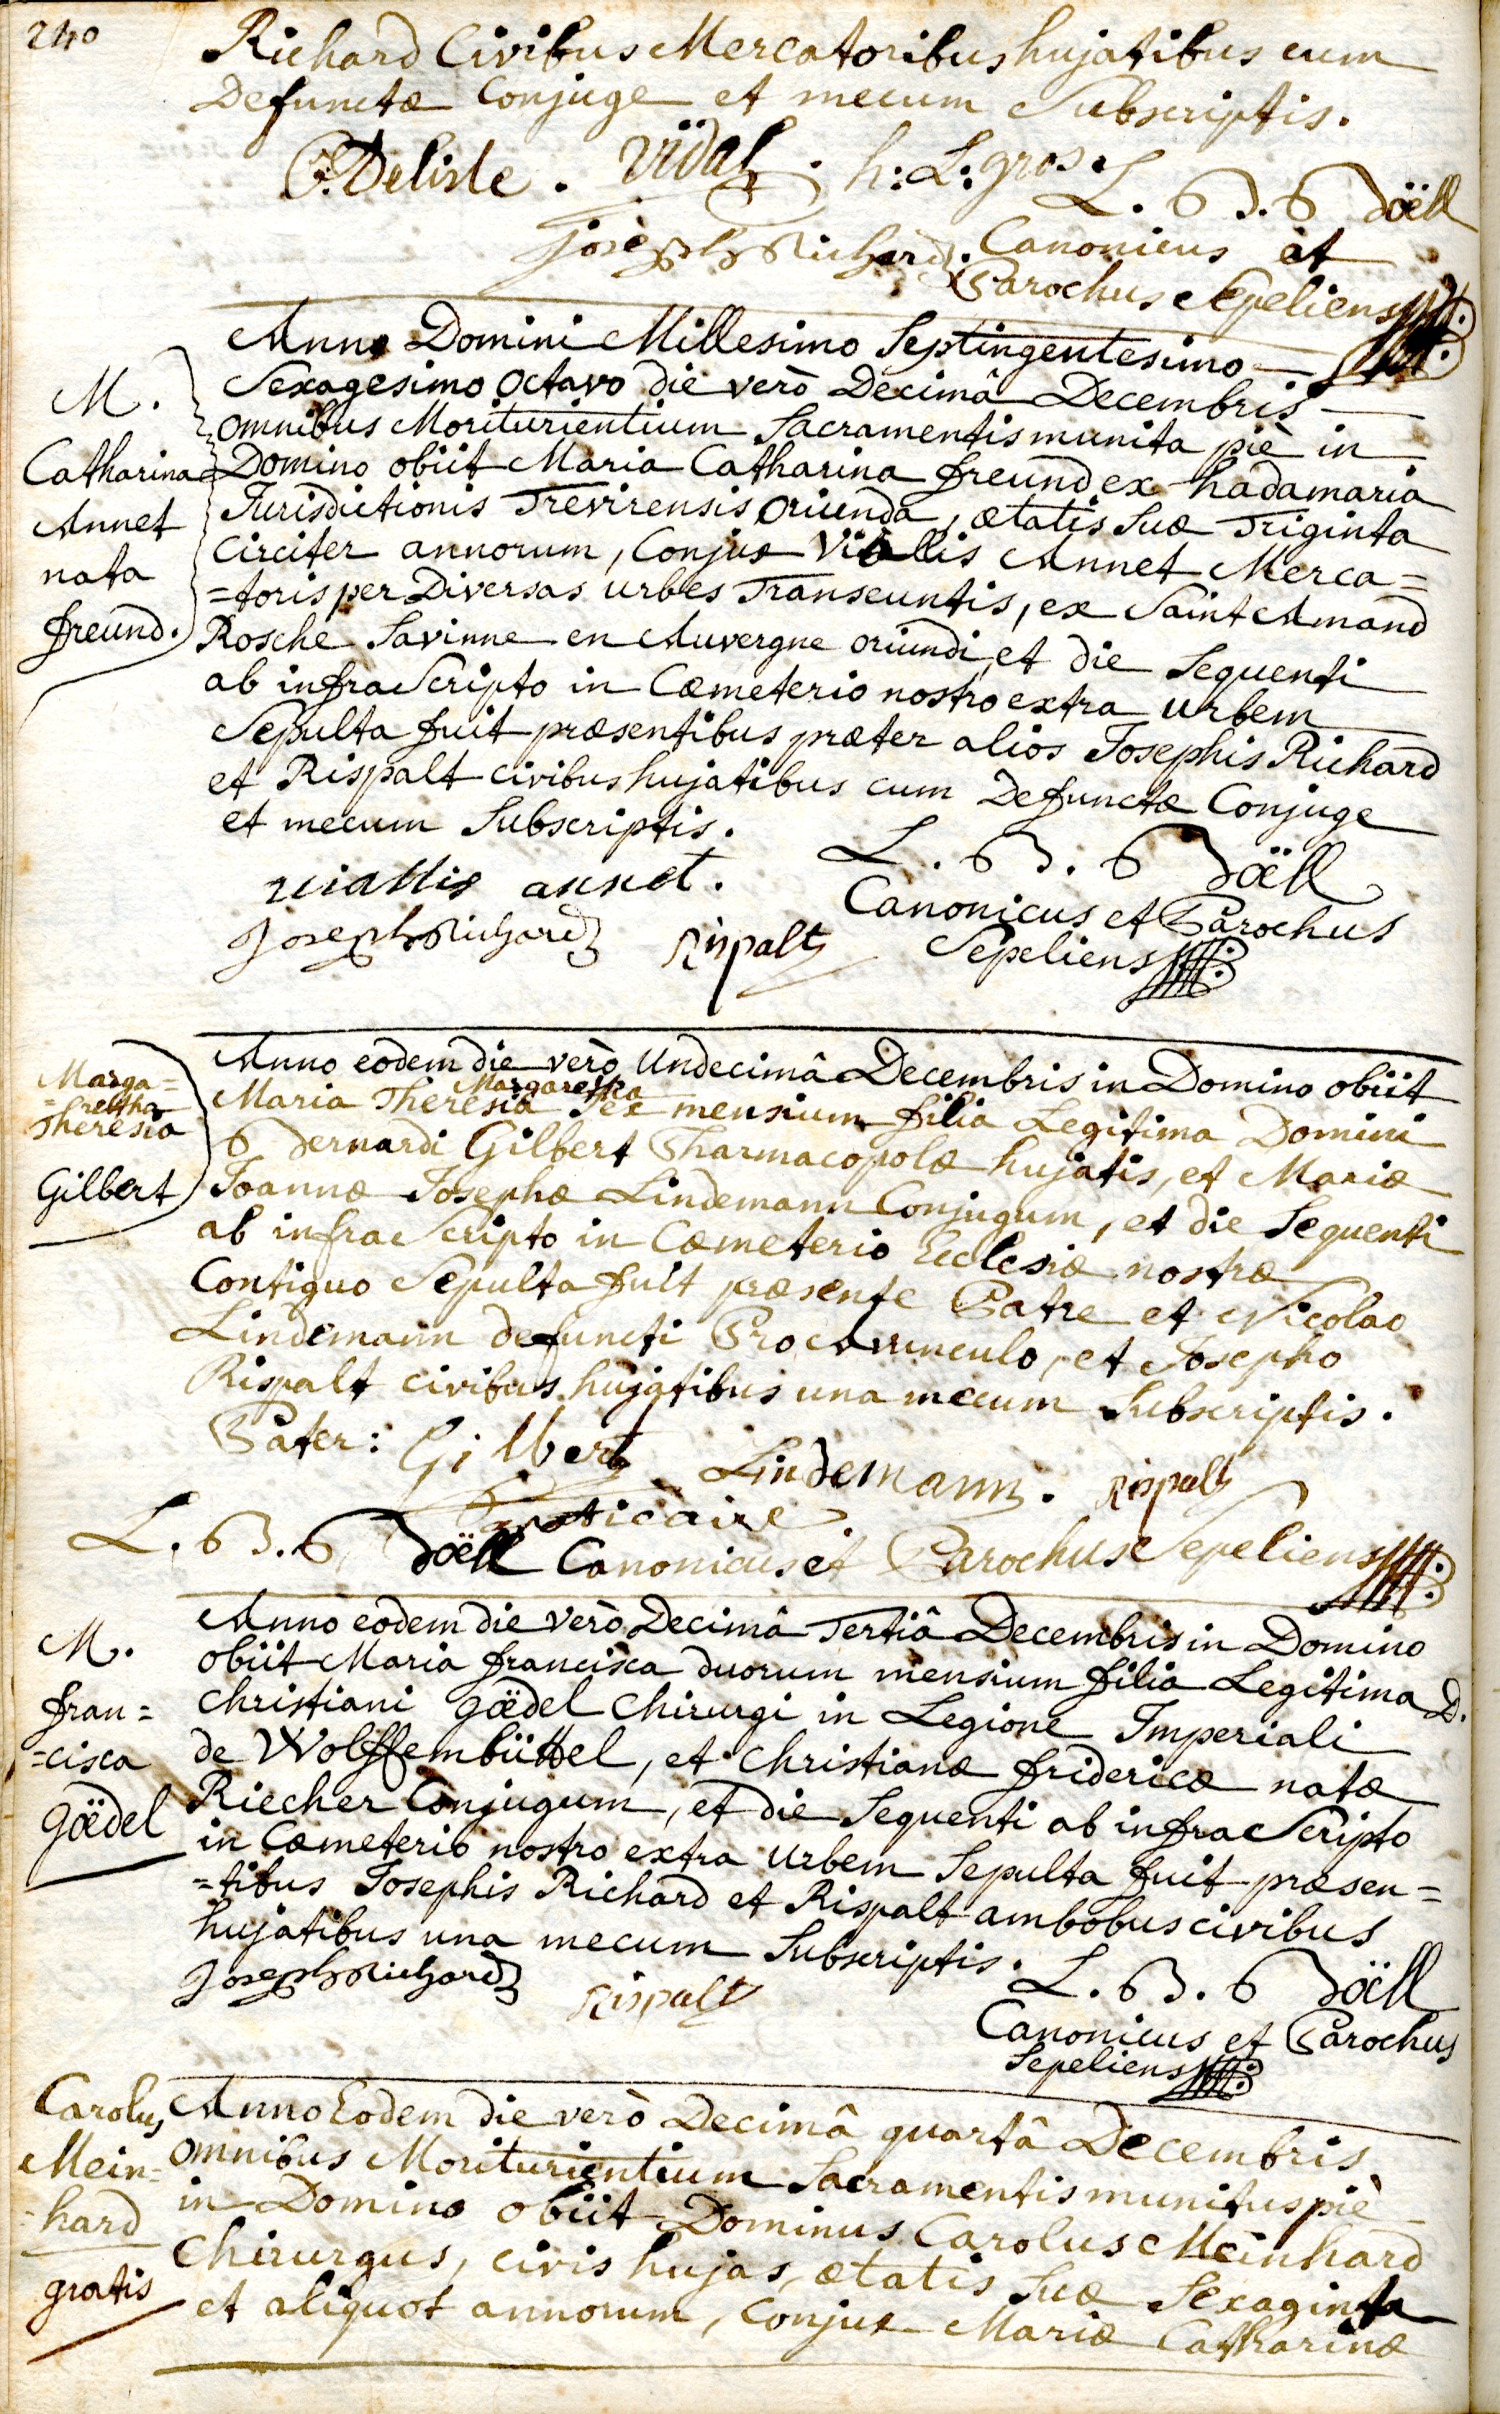 240
Richard Civibus Mercatoribus hujatibus cum
Defunctæ Conjuge et mecum Subscriptis.
Delisle. Vidal. h: L: gros.
L. B. Boëll
Joseph Richard. Canonicus et
Parochus Sepeliens
Anno Domini Millesimo Septingentesimo
Sexagesimo Octavo die verò Decimâ Decembris
omnibus Moriturientium Sacramentis munita piè in
Domino obiit Maria Catharina freund ex hadamaria
Jurisdictionis Trevirensis oriunda, ætatis Suæ Triginta
circiter annorum, Conjux Viallis Annet Merca=
=toris per Diversas urbes Transeuntis, ex Saint Amand
Rosche Savinne en Auvergne oriundi, et die Sequenti
ab infra Scripto in Cæmeterio nostro extra urbem
Sepulta fuit præsentibus præter alios Josephis Richard
et Rispalt civibus hujatibus cum Defunctæ Conjuge
et mecum Subscriptis.
M.
Catharina
Annet
nata
freund.
viallis annet.
L. B. Boëll
Canonicus et Parochus
Joseph Richard Rispalt Sepeliens
Anno eodem die verò Undecimâ Decembris in Domino obiit
Margaretha
Maria Theresia Sex mensium filia Legitima Domini
Bernardi Gilbert Pharmacopolæ hujatis, et Mariæ
Joannæ Josephæ Lindemann Conjugum, et die Sequenti
ab infra Scripto in Cæmeterio Ecclesiæ nostræ
Contiguo Sepulta fuit præsente Patre et Nicolao
Lindemann defuncti Pro Avunculo, et Josepho
Rispalt civibus hujatibus una mecum Subscriptis.
Marga=
=retha
Theresia
Gilbert
Pater: Gilbert Lindemann. Rispalt
L. B. Boëll Canonicus et Parochus Sepeliens
Anno eodem die verò Decimâ Tertiâ Decembris in Domino
obiit Maria francisca duorum mensium filia Legitima D.
Christiani Gœdel Chirurgi in Legione Imperiali
de Wolffembüttel, et Christianæ fridericæ natæ
Riecher Conjugum, et die Sequenti ab infra Scripto
in Cæmeterio nostro extra urbem Sepulta fuit præsen=
=tibus Josephis Richard et Rispalt ambobus civibus
hujatibus una mecum Subscriptis.
M.
fran=
=cisca
Gœdel
Joseph Richard Rispalt L. B. Boëll
Canonicus et Parochus
Sepeliens
Anno Eodem die verò Decimâ quartâ Decembris
omnibus Moriturientium Sacramentis munitus piè
in Domino obiit Dominus Carolus Meinhard
Chirurgus, civis hujas, ætatis Suæ Sexaginta
et aliquot annorum, Conjux Mariæ Catharinæ
Carolus
Mein=
=hard
gratis